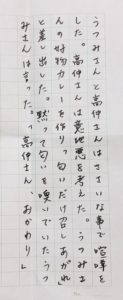 うつみさんと高仲さんはささいな事で喧嘩を
した。高仲さんは意地悪を考えた。うつみさ
んの好物カレーを作り、匂いだけ召しあがれ
と差し出した。黙って匂を嗅いでいたうつ
みさんは言った。「高仲さん、おかわり」